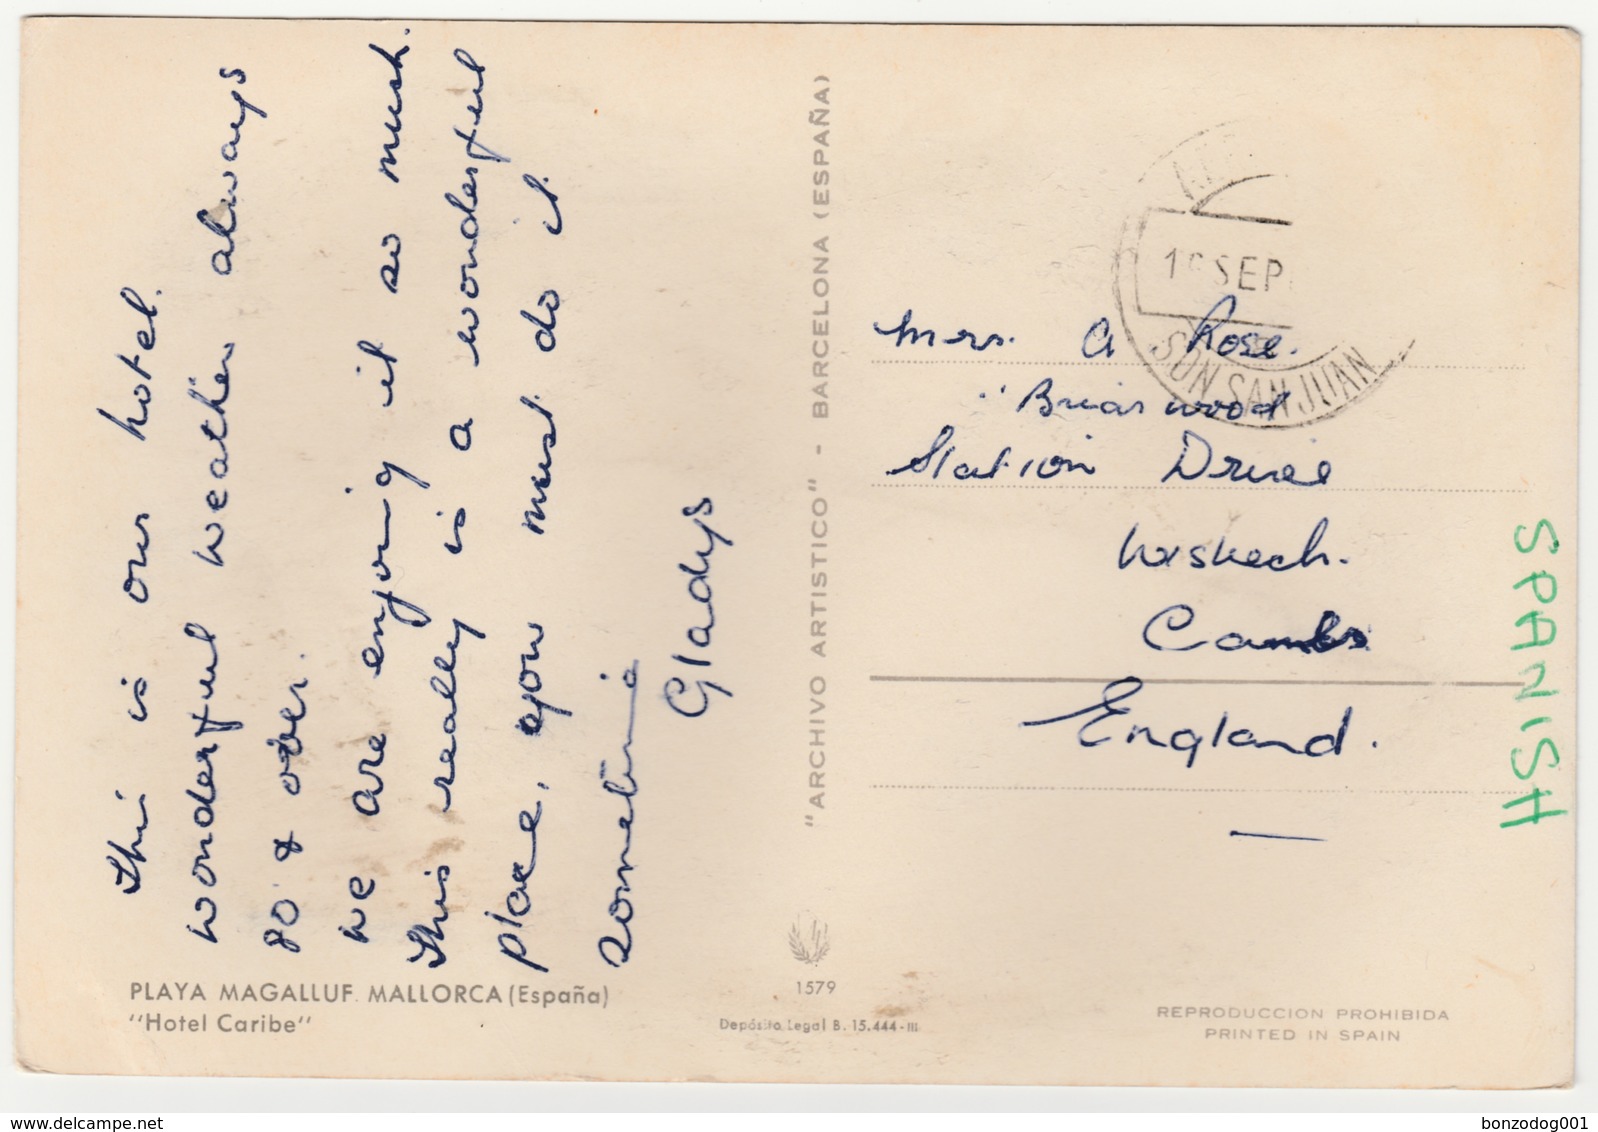 This is our hotel.
wonderful weather always
80 & over.
we are enjoying it so much.
This really is a wonderful
place, you must do it
sometime
Gladys
"ARCHIVO ARTISTICO" - BARCELONA (ESPAÑA)
1579
Depósito Legal B. 15.444-III
PLAYA MAGALLUF. MALLORCA (España)
"Hotel Caribe"
SEP
SON SAN JUAN
Mrs. A Rose.
"Briarwood
Station Drive
Wisbech.
Cambs
England.
SPANISH
REPRODUCCION PROHIBIDA
PRINTED IN SPAIN
delcampe.net
bonzodog001